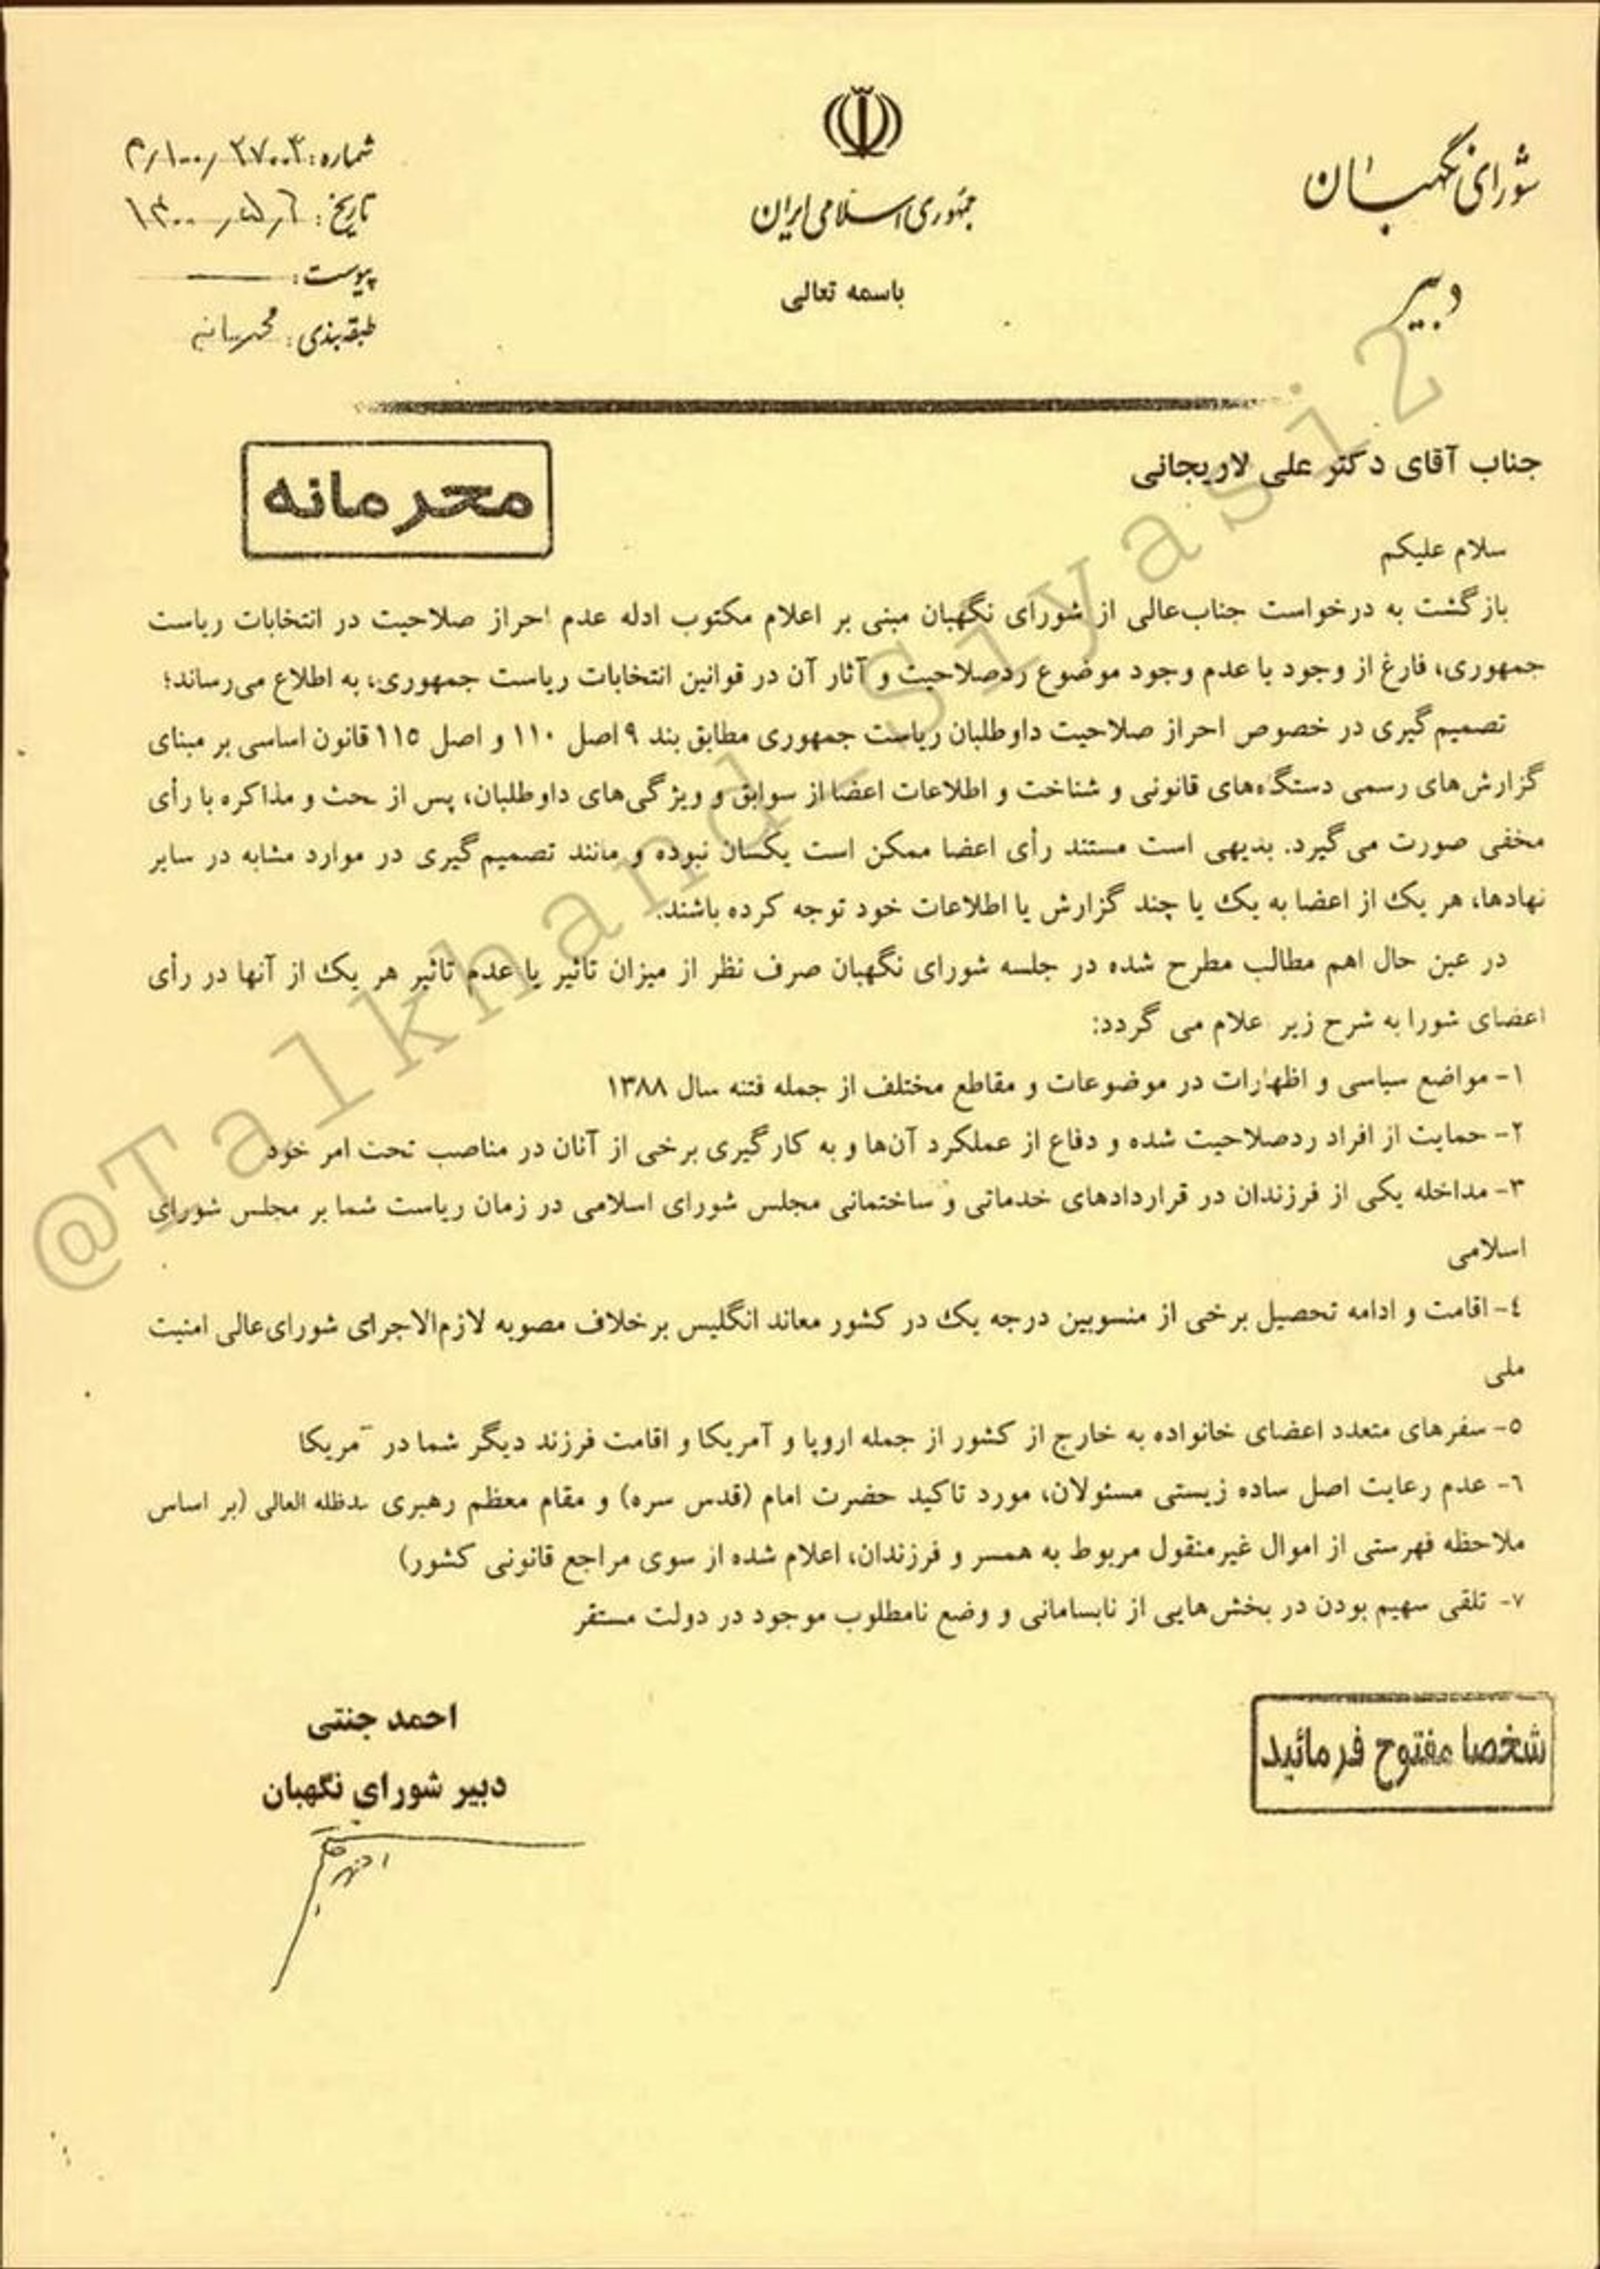 شورای نگهبان
دبیر
جمهوری اسلامی ایران
باسمه تعالی
شماره:
تاریخ: ۱۴۰۰/۵/۶
پیوست:
طبقه‌بندی: محرمانه
محرمانه
جناب آقای دکتر علی لاریجانی
سلام علیکم
بازگشت به درخواست جناب‌عالی از شورای نگهبان مبنی بر اعلام مکتوب ادله عدم احراز صلاحیت در انتخابات ریاست
جمهوری، فارغ از وجود یا عدم وجود موضوع ردصلاحیت و آثار آن در قوانین انتخابات ریاست جمهوری، به اطلاع می‌رساند؛
تصمیم‌گیری در خصوص احراز صلاحیت داوطلبان ریاست جمهوری مطابق بند ۹ اصل ۱۱۰ و اصل ۱۱۵ قانون اساسی بر مبنای
گزارش‌های رسمی دستگاه‌های قانونی و شناخت و اطلاعات اعضا از سوابق و ویژگی‌های داوطلبان، پس از بحث و مذاکره با رأی
مخفی صورت می‌گیرد. بدیهی است مستند رأی اعضا ممکن است یکسان نبوده و مانند تصمیم‌گیری در موارد مشابه در سایر
نهادها، هر یک از اعضا به یک یا چند گزارش یا اطلاعات خود توجه کرده باشند.
در عین حال اهم مطالب مطرح شده در جلسه شورای نگهبان صرف نظر از میزان تاثیر یا عدم تاثیر هر یک از آنها در رأی
اعضای شورا به شرح زیر اعلام می گردد:
۱- مواضع سیاسی و اظهارات در موضوعات و مقاطع مختلف از جمله فتنه سال ۱۳۸۸
۲- حمایت از افراد ردصلاحیت شده و دفاع از عملکرد آن‌ها و به کارگیری برخی از آنان در مناصب تحت امر خود
۳- مداخله یکی از فرزندان در قراردادهای خدماتی و ساختمانی مجلس شورای اسلامی در زمان ریاست شما بر مجلس شورای
اسلامی
۴- اقامت و ادامه تحصیل برخی از منسوبین درجه یک در کشور معاند انگلیس برخلاف مصوبه لازم‌الاجرای شورای‌عالی امنیت
ملی
۵- سفرهای متعدد اعضای خانواده به خارج از کشور از جمله اروپا و آمریکا و اقامت فرزند دیگر شما در آمریکا
۶- عدم رعایت اصل ساده زیستی مسئولان، مورد تاکید حضرت امام (قدس سره) و مقام معظم رهبری مدظله العالی (بر اساس
ملاحظه فهرستی از اموال غیرمنقول مربوط به همسر و فرزندان، اعلام شده از سوی مراجع قانونی کشور)
۷- تلقی سهیم بودن در بخش‌هایی از نابسامانی و وضع نامطلوب موجود در دولت مستقر
احمد جنتی
دبیر شورای نگهبان
شخصا مفتوح فرمائید
@Talkhand_Siyasi2